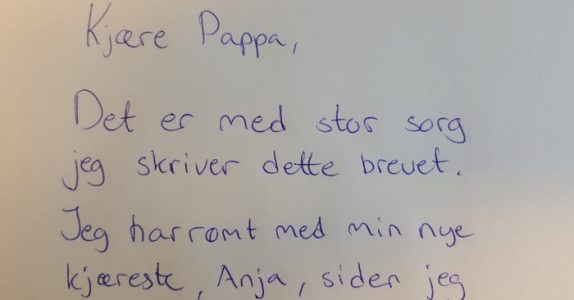 Kjære Pappa,
Det er med stor sorg
jeg skriver dette brevet.
Jeg har rømt med min nye
kjæreste, Anja, siden jeg